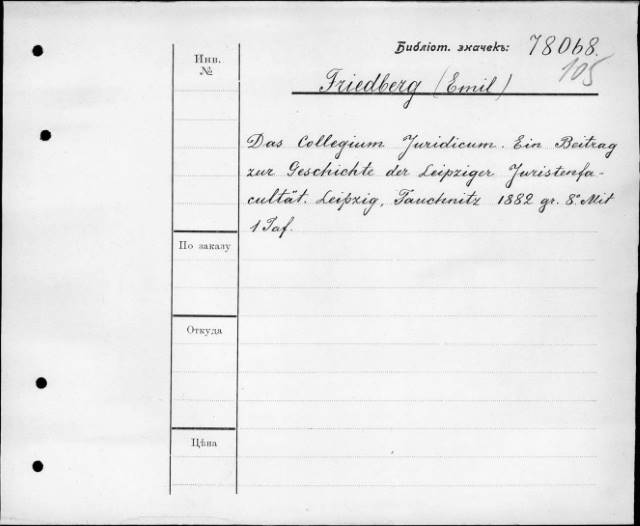 Библіот. значекъ: 78068.
105
Инв.
№
Friedberg (Emil)
Das Collegium Juridicum. Ein Beitrag
zur Geschichte der Leipziger Juristenfa-
cultät. Leipzig, Tauchnitz 1882 gr. 8° Mit
1 Taf.
По заказу
Откуда
Цѣна